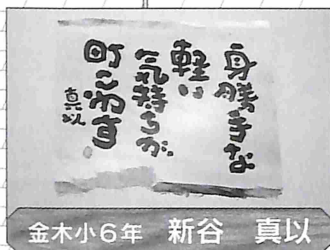 身勝手な
軽い
気持ちが
町に涙
真以
金木小6年 新谷 真以